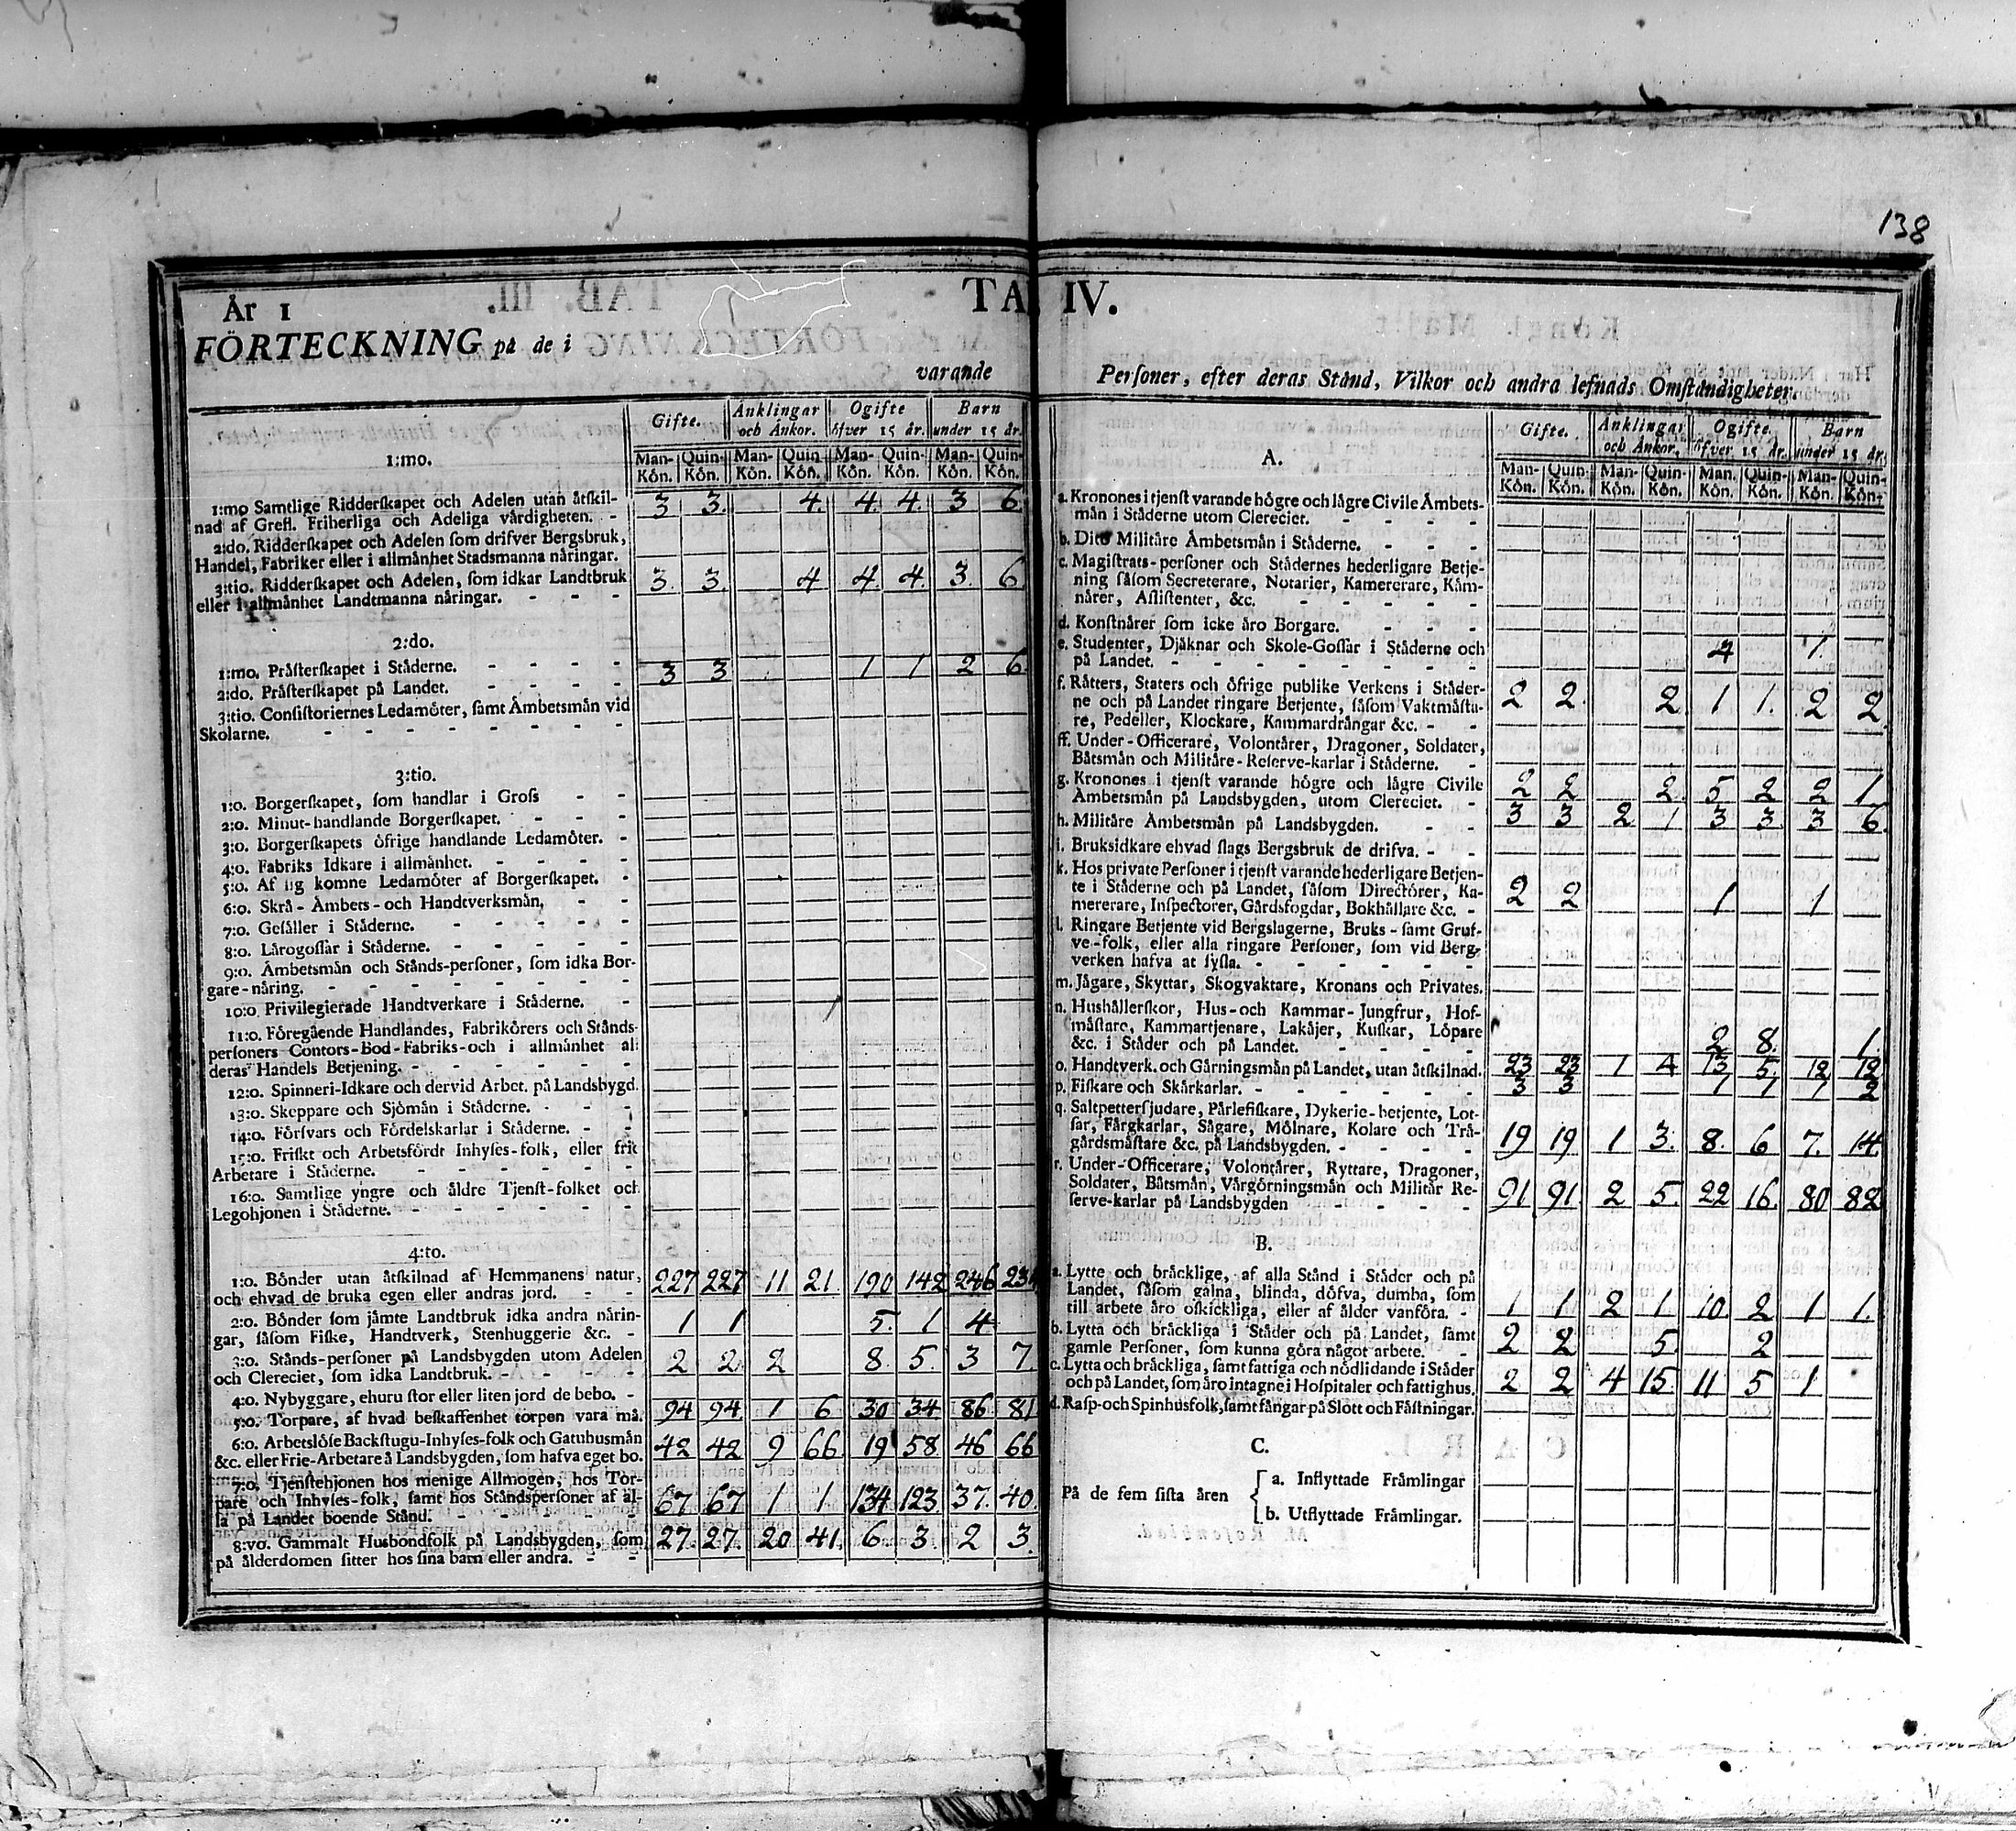 138
År 1
TA IV.
FÖRTECKNING på de i
varande
Personer, efter deras Stånd, Vilkor och andra lefnads Omständigheter.
Gifte. Änklingar och Änkor. Ogifte öfver 15 år. Barn under 15 år.
Man-Kön. Quin-Kön. Man-Kön. Quin-Kön. Man-Kön. Quin-Kön. Man-Kön. Quin-Kön.
1:mo.
1:mo Samtlige Ridderskapet och Adelen utan åtskil-
nad af Grefl. Friherliga och Adeliga värdigheten. - 3 3. 4. 4. 4. 3 6.
2:do. Ridderskapet och Adelen som drifver Bergsbruk,
Handel, Fabriker eller i allmänhet Stadsmanna näringar.
3:tio. Ridderskapet och Adelen, som idkar Landtbruk 3. 3. 4 4. 4. 3. 6.
eller i allmänhet Landtmanna näringar. - - -
2:do.
1:mo. Prästerskapet i Städerne. - - - - 3 3 1 1 2 6.
2:do. Prästerskapet på Landet. - - - -
3:tio. Consistoriernes Ledamöter, samt Ämbetsmän vid
Skolarne. - - - - - - -
3:tio.
1:o. Borgerskapet, som handlar i Gross - -
2:o. Minut-handlande Borgerskapet. - - -
3:o. Borgerskapets öfrige handlande Ledamöter. -
4:o. Fabriks Idkare i allmänhet. - - - -
5:o. Af sig komne Ledamöter af Borgerskapet. -
6:o. Skrå-Ämbets-och Handtverksmän, - -
7:o. Gesäller i Städerne. - - - - -
8:o. Lärogossar i Städerne. - - - - -
9:o. Ämbetsmän och Stånds-personer, som idka Bor-
gare-näring. - - - - - - -
10:o Privilegierade Handtverkare i Städerne. -
11:o. Föregående Handlandes, Fabrikörers och Stånds-
personers Contors-Bod-Fabriks-och i allmänhet al-
deras Handels Betjening. - - - - - -
12:o. Spinneri-Idkare och dervid Arbet. på Landsbygd.
13:o. Skeppare och Sjömän i Städerne. - - -
14:o. Försvars och Fördelskarlar i Städerne. - -
15:o. Friskt och Arbetsfördt Inhyses-folk, eller frie
Arbetare i Städerne. - - - - - -
16:o. Samtlige yngre och äldre Tjenst-folket och
Legohjonen i Städerne. - - - - - -
4:to.
1:o. Bönder utan åtskilnad af Hemmanens natur, 227 227 11 21. 190 142 246
och ehvad de bruka egen eller andras jord. - -
2:o. Bönder som jämte Landtbruk idka andra närin- 1 1 5. 1 4
gar, såsom Fiske, Handtverk, Stenhuggerie &c. -
3:o. Stånds-personer på Landsbygden utom Adelen 2 2 2 8. 5. 3 7.
och Clereciet, som idka Landtbruk. - - - -
4:o. Nybyggare, ehuru stor eller liten jord de bebo. -
5:o. Torpare, af hvad beskaffenhet torpen vara må. 94 94 1 6. 30 34 86 81
6:o. Arbetslöse Backstugu-Inhyses-folk och Gatuhusmän 42 42 9 66 19 58 46 66
&c. eller Frie-Arbetare å Landsbygden, som hafva eget bo.
7:o. Tjenstehjonen hos menige Allmogen, hos Tor-
pare och Inhyses-folk, samt hos Ståndspersoner af al- 67 67 1 1 134 123. 37. 40.
la på Landet boende Stånd. - - - - -
8:vo. Gammalt Husbondfolk på Landsbygden, som 27 27. 20 41. 6 3 2 3.
på ålderdomen sitter hos sina barn eller andra. - -
Gifte. Änklingar och Änkor. Ogifte öfver 15 år. Barn under 15 år.
Man-Kön. Quin-Kön. Man-Kön. Quin-Kön. Man. Kön. Quin-Kön. Man-Kön. Quin-Kön.
A.
a. Kronones i tjenst varande högre och lägre Civile Ämbets-
män i Städerne utom Clereciet. - - - -
b. Dito Militäre Ämbetsmän i Städerne. - - -
c. Magistrats-personer och Städernes hederligare Betje-
ning såsom Secreterare, Notarier, Kamererare, Käm-
närer, Assistenter, &c. - - - - -
d. Konstnärer som icke äro Borgare. - - -
e. Studenter, Djäknar och Skole-Gossar i Städerne och
på Landet. - - - - - - - 4 1
f. Rätters, Staters och öfrige publike Verkens i Städer-
ne och på Landet ringare Betjente, såsom Vaktmästa- 2 2. 2. 1 1. 2 2.
re, Pedeller, Klockare, Kammardrängar &c. - -
ff. Under-Officerare, Volontärer, Dragoner, Soldater,
Båtsmän och Militäre-Reserve-karlar i Städerne. -
g. Kronones i tjenst varande högre och lägre Civile
Ämbetsmän på Landsbygden, utom Clereciet. - 2 2 2. 5 2 2 1
h. Militäre Ämbetsmän på Landsbygden. - - 3 3 2 1 3 3 3 6.
i. Bruksidkare ehvad slags Bergsbruk de drifva. - -
k. Hos private Personer i tjenst varande hederligare Betjen-
te i Städerne och på Landet, såsom Directörer, Ka- 2 2 1 1
mererare, Inspectorer, Gårdsfogdar, Bokhållare &c. -
l. Ringare Betjente vid Bergslagerne, Bruks-samt Gruf-
ve-folk, eller alla ringare Personer, som vid Berg-
verken hafva at sysla. - - - - - -
m. Jägare, Skyttar, Skogvaktare, Kronans och Privates.
n. Hushållerskor, Hus-och Kammar-Jungfrur, Hof-
mästare, Kammartjenare, Lakäjer, Kuskar, Löpare
&c. i Städer och på Landet. - - - - 2 8. 1.
o. Handtverk. och Gärningsmän på Landet, utan åtskilnad. 23 23 1 4 13 5. 12 12
p. Fiskare och Skärkarlar. - - - - - 3 3 1 1 1 2
q. Saltpettersjudare, Pärlefiskare, Dykerie-betjente, Lot-
sar, Färgkarlar, Sågare, Mölnare, Kolare och Trä- 19 19 1 3. 8. 6 7. 14.
gårdsmästare &c. på Landsbygden. - - - -
r. Under-Officerare, Volontärer, Ryttare, Dragoner,
Soldater, Båtsmän, Vargörningsmän och Militär Re- 91 91. 2 5. 22 16. 80 82
serve-karlar på Landsbygden - - - -
B.
a. Lytte och bräcklige, af alla Stånd i Städer och på
Landet, såsom galna, blinda, döfva, dumba, som
till arbete äro oskickliga, eller af ålder vanföra. - 1 1 2 1 10. 2 1 1.
b. Lytta och bräckliga i Städer och på Landet, samt
gamle Personer, som kunna göra något arbete. - 2 2 5. 2
c. Lytta och bräckliga, samt fattiga och nödlidande i Städer
och på Landet, som äro intagne i Hospitaler och fattighus. 2 2 4 15. 11 5 1
d. Rasp-och Spinhusfolk, samt fångar på Slott och Fästningar.
C.
På de fem sista åren
a. Inflyttade Främlingar
b. Utflyttade Främlingar.